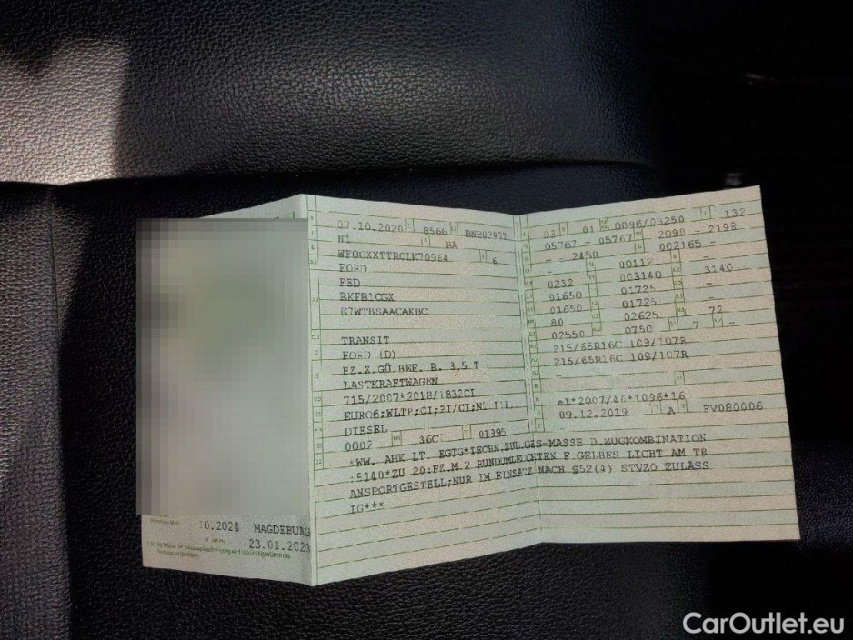 10.2024 MAGDEBURG
23.01.2023
07.10.2020 8566
N1 BA
6
FORD
FED
BKFB1CGX
TRANSIT
FORD (D)
FZ.Z.GÜ.BEF. B. 3,5 T
LASTKRAFTWAGEN
715/2007*2018/1832CI
EURO6;WLTP;CI;PI/CI;N1
DIESEL
0002 36CI 01995
*WW. AHK LT. EGTG*TECHN.ZUL.GES-MASSE D.ZUGKOMBINATION
:5140*ZU 20:FZ.M.2 RUNDUMLEUCHTEN F.GELBES LICHT AM TR
ANSPORTGESTELL;NUR IM EINSATZ NACH §52(4) STVZO ZULÄSS
IG***
02 01 0096/03250 132
05767 - 05767 2098 - 2198
- - 2450 002165 -
0232 003140 3140
01650 01725 -
01650 01725 -
80 02625 72
02550 0750 7 -
215/65R16C 109/107R
215/65R16C 109/107R
e1*2007/46*1096*16
09.12.2019 A FV080006
CarOutlet.eu